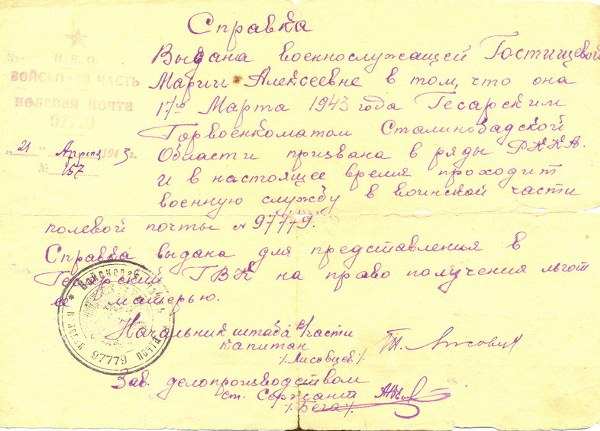 Справка
Н.К.О.
ВОЙСКОВАЯ ЧАСТЬ
ПОЛЕВАЯ ПОЧТА
97779
"21" Апреля 1943
№ 157
Выдана военнослужащей Гостищевой
Марии Алексеевне в том, что она
17го Марта 1943 года Гесарским
Горвоенкоматом Сталинобадской
Области призвана в ряды РККА.
и в настоящее время проходит
военную службу в воинской части
полевой почты № 97779.
Справка выдана для представления в
Гесарский ГВК на право получения льгот
ее матерью.
Начальник штаба в/части
капитан
/Лисовцев/
Зав. делопроизводством
ст. Сержант
/Бега/
Войсковая часть
97779